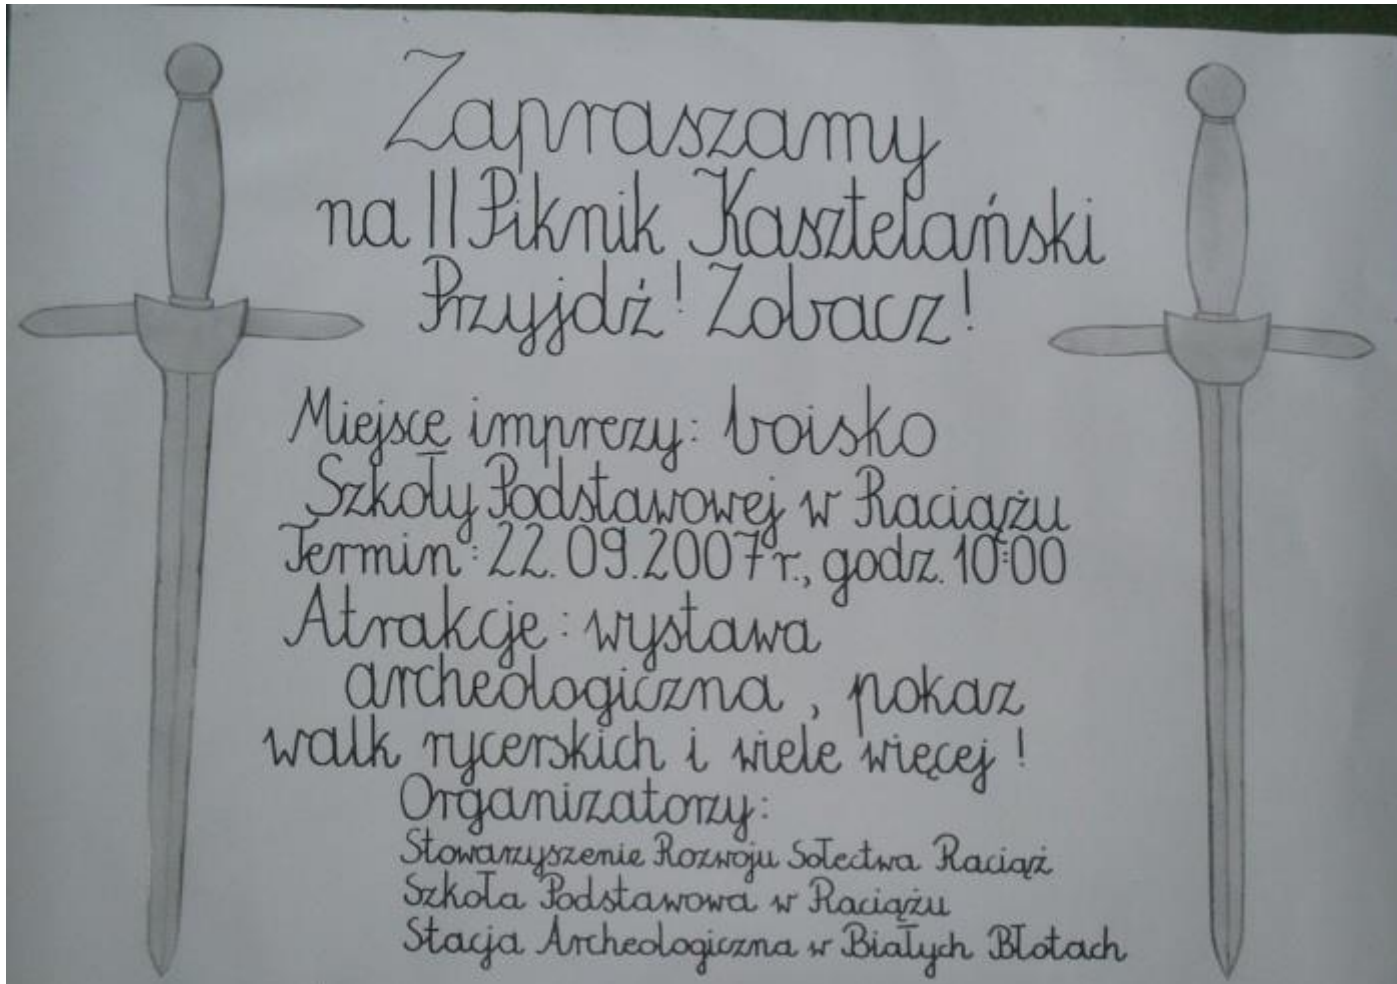 Zapraszamy
na II Piknik Kasztelański
Przyjdź! Zobacz!
Miejsce imprezy: boisko
Szkoły Podstawowej w Raciążu
Termin: 22.09.2007r., godz. 10:00
Atrakcje: wystawa
archeologiczna, pokaz
walk rycerskich i wiele więcej!
Organizatorzy:
Stowarzyszenie Rozwoju Sołectwa Raciąż
Szkoła Podstawowa w Raciążu
Stacja Archeologiczna w Białych Błotach